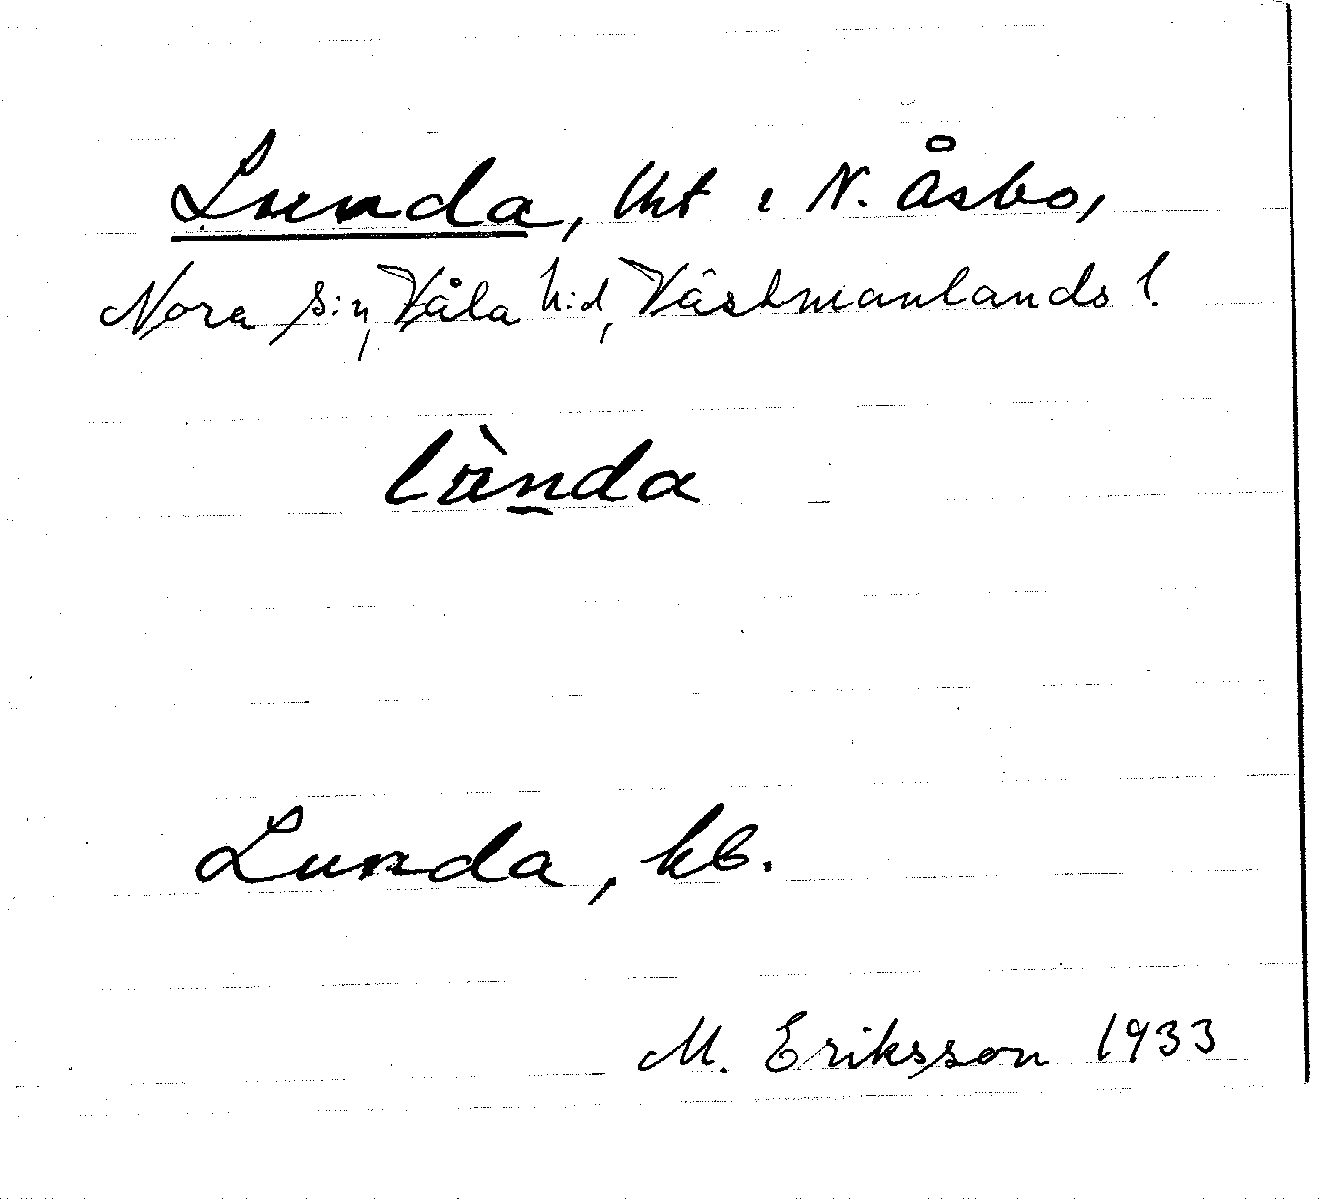 Lunda, tht i N. Åsbo,
Nora s:n, Våla h:d, Västmanlands l.
lu̇̀nda
Lunda, kb.
M. Eriksson 1933